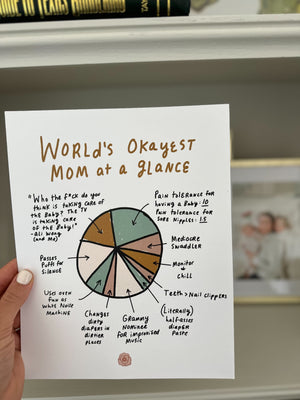 World's Okayest
Mom at a glance
"Who the f*ck do you
think is taking care of
the Baby? The TV
is taking care
of the Baby!"
- Ali Wong
(and me)
Pain tolerance for
having a Baby: 10
Pain tolerance for
sore nipples: 15
Mediocre
Swaddler
Monitor
&
chill
Teeth > Nail clippers
(Literally)
half-asses
diaper
paste
Grammy
Nominee
for improvised
Music
Changes
dirty
diapers in
dirtier
places
Uses oven
fan as
White Noise
Machine
Passes
Puffs for
Silence